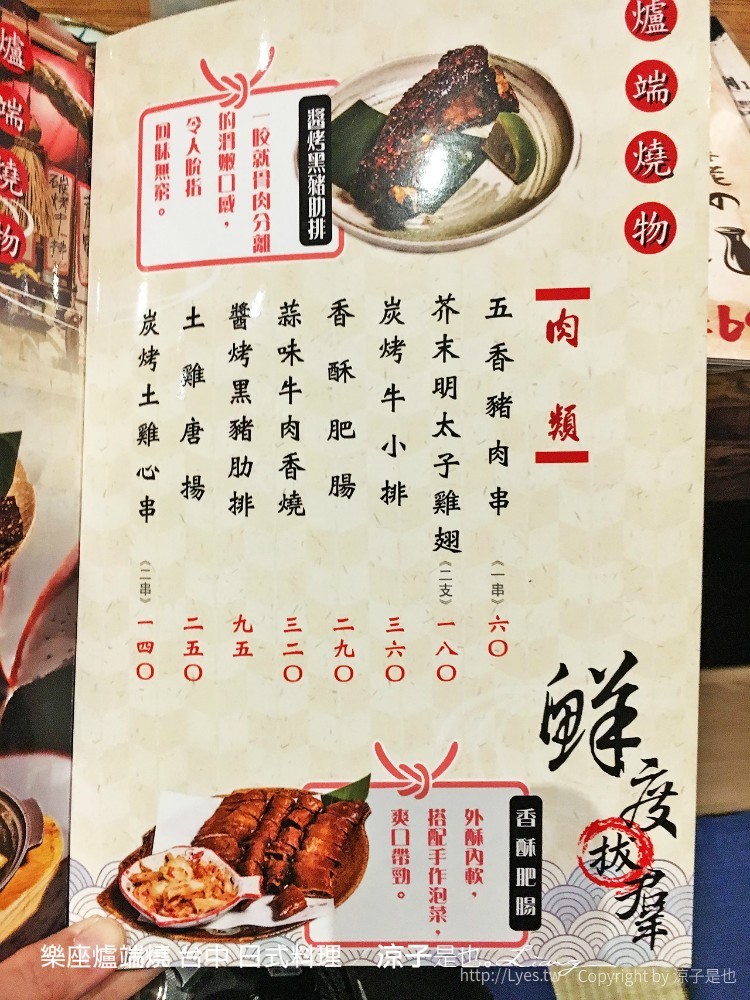 爐端燒物
醬烤黑豬肋排
一咬就骨肉分離
的滑嫩口感，
令人吮指
回味無窮。
肉類
五香豬肉串《一串》六〇
芥末明太子雞翅《二支》一八〇
炭烤牛小排 三六〇
香酥肥腸 二九〇
蒜味牛肉香燒 三二〇
醬烤黑豬肋排 九五
土雞唐揚 二五〇
炭烤土雞心串《二串》一四〇
鮮度拔羣
香酥肥腸
外酥內軟，
搭配手作泡菜，
爽口帶勁。
爐端燒物
樂座爐端燒 台中 日式料理 涼子是也
http://Lyes.tw Copyright by 涼子是也